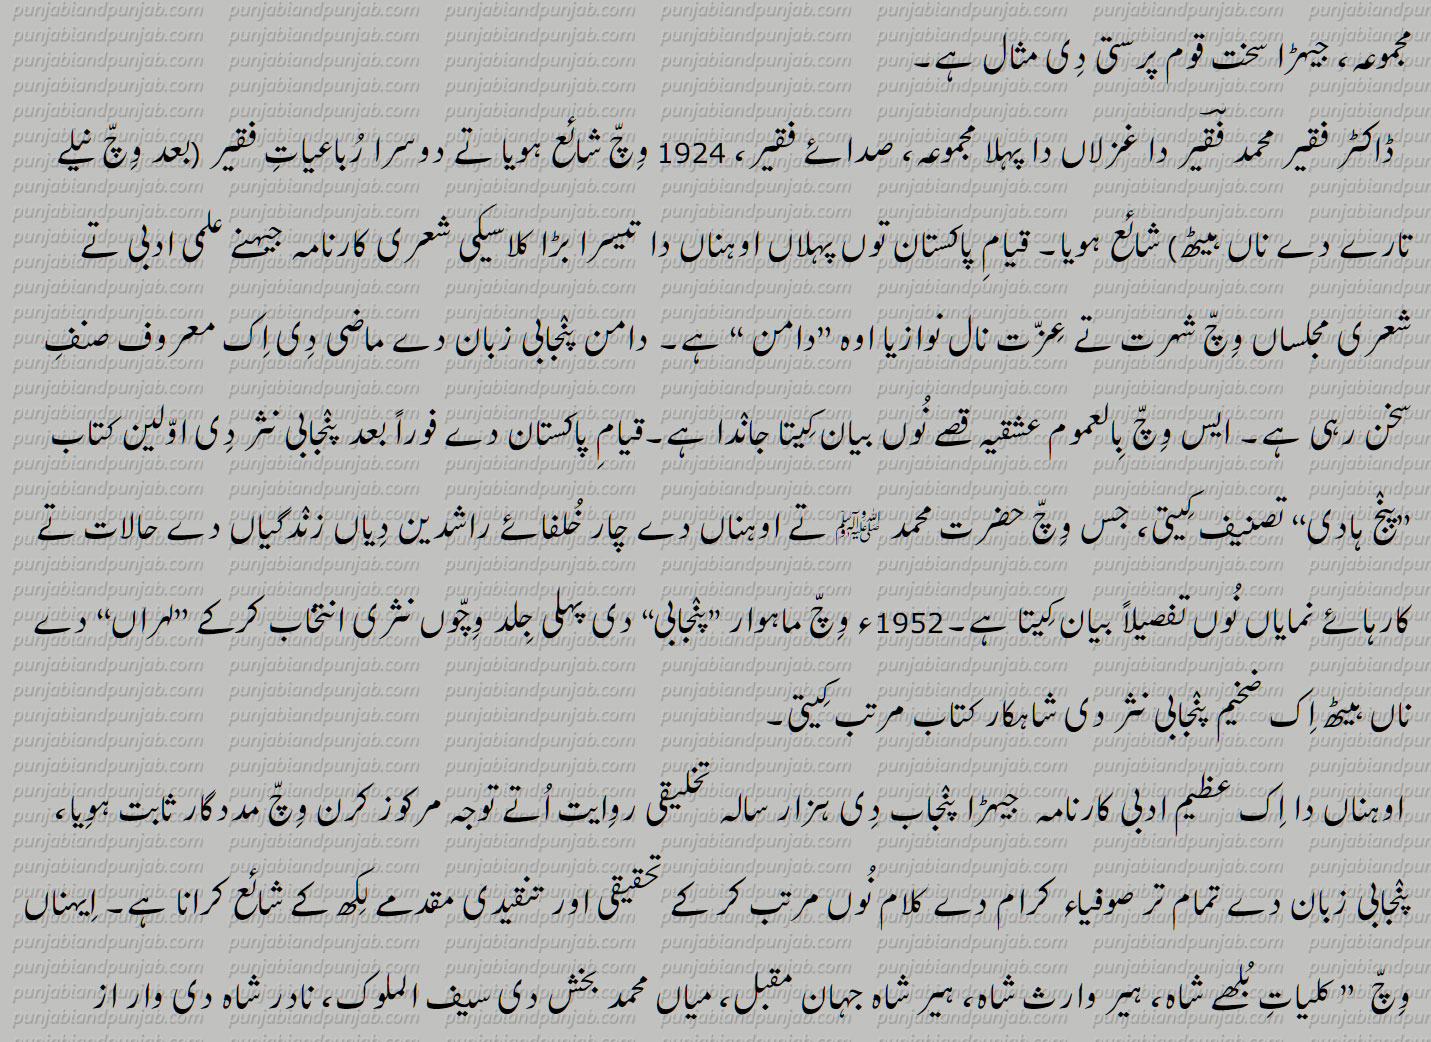 مجموعہ، جیہڑا سخت قوم پرستی دِی مثال ہے۔
ڈاکٹر فقیر محمد فقیرؔ دا غزلاں دا پہلا مجموعہ، صدائے فقیر، 1924 وِچّ شائع ہویا تے دوسرا رُباعیاتِ فقیر (بعد وِچّ نیلے
تارے دے ناں ہیٹھ) شائع ہویا۔ قیامِ پاکستان توں پہلاں اوہناں دا تیسرا بڑا کلاسیکی شعری کارنامہ جیہنے علمی ادبی تے
شعری مجلساں وِچّ شہرت تے عِزّت نال نوازیا اوہ ”دامن “ ہے۔ دامن پنْجابی زبان دے ماضی دِی اِک معروف صنفِ
سخن رہی ہے۔ ایس وِچّ بِالعموم عشقیہ قصے نُوں بیان کِیتا جانْدا ہے۔قیامِ پاکستان دے فوراً بعد پنْجابی نثر دِی اوّلین کتاب
”پنْج ہادی“ تصنیف کِیتی، جس وِچّ حضرت محمد ﷺ تے اوہناں دے چار خُلفائے راشدین دِیاں زنْدگیاں دے حالات تے
کارہائے نمایاں نُوں تفصیلاً بیان کِیتا ہے۔1952ء وِچّ ماہوار ”پنْجابی“ دی پہلی جِلد وِچّوں نثری انتخاب کرکے ”لہراں“ دے
ناں ہیٹھ اِک ضخیم پنْجابی نثر دی شاہکار کتاب مرتب کِیتی۔
اوہناں دا اِک عظیم ادبی کارنامہ جیہڑا پنْجاب دِی ہزار سالہ تخلیقی روایت اُتے توجہ مرکوز کرن وِچّ مددگار ثابت ہوِیا،
پنْجابی زبان دے تمام تر صوفیاء کرام دے کلام نُوں مرتب کر کے تحقیقی اور تنقیدی مقدمے لِکھ کے شائع کرانا ہے۔ اِیہناں
وِچّ ” کلیاتِ بُلھے شاہ، ہیر وارث شاہ، ہیر شاہ جہان مقبل، میاں محمد بخش دی سیف الملوک، نادر شاہ دی وار از